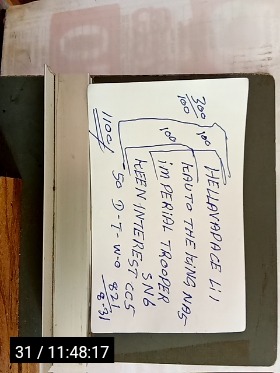 300
100
100
HELLAVAPACE L:1
KAUTO THE KING NAS
100
IMPERIAL TROOPER
SN6
KEEN INTEREST CC5
1100/
50 D-T-W-O 821
8-31
31 / 11:48:17